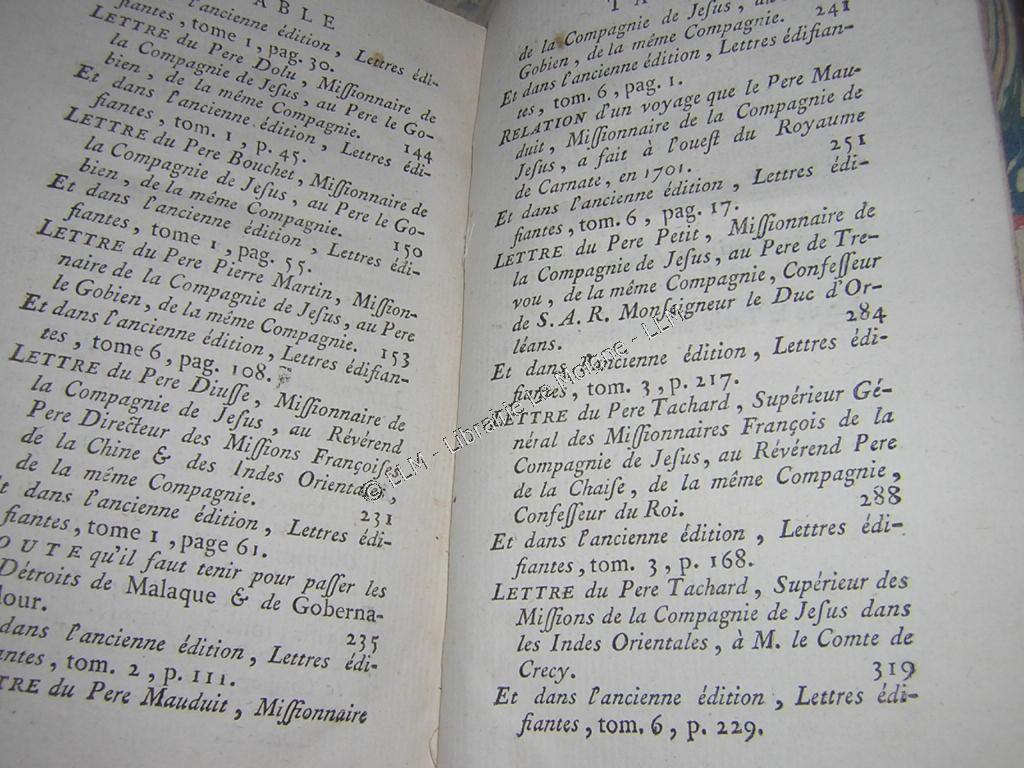 TABLE
l'ancienne édition, Lettres édi-
fiantes, tome 1, pag. 30.
LETTRE du Pere Dolu, Missionnaire de
la Compagnie de Jesus, au Pere le Go-
bien, de la même Compagnie. 144
Et dans l'ancienne édition, Lettres édi-
fiantes, tom. 1, p. 45.
LETTRE du Pere Bouchet, Missionnaire de
la Compagnie de Jesus, au Pere le Go-
bien, de la même Compagnie. 150
Et dans l'ancienne édition, Lettres édi-
fiantes, tome 1, pag. 55.
LETTRE du Pere Pierre Martin, Mission-
naire de la Compagnie de Jesus, au Pere
le Gobien, de la même Compagnie. 153
Et dans l'ancienne édition, Lettres édifian-
tes, tome 6, pag. 108.
LETTRE du Pere Diusse, Missionnaire de
la Compagnie de Jesus, au Révérend
Pere Directeur des Missions Françoises
de la Chine & des Indes Orientales,
de la même Compagnie. 231
Et dans l'ancienne édition, Lettres édi-
fiantes, tome 1, page 61.
OUTE qu'il faut tenir pour passer les
Détroits de Malaque & de Goberna-
dour. 235
dans l'ancienne édition, Lettres édi-
antes, tom. 2, p. 111.
TRE du Pere Mauduit, Missionnaire
TA
de la Compagnie de Jesus, au
Gobien, de la même Compagnie. 241
Et dans l'ancienne édition, Lettres édifian-
tes, tom. 6, pag. 1.
RELATION d'un voyage que le Pere Mau-
duit, Missionnaire de la Compagnie de
Jesus, a fait à l'ouest du Royaume
de Carnate, en 1701. 251
Et dans l'ancienne édition, Lettres édi-
fiantes, tom. 6, pag. 17.
LETTRE du Pere Petit, Missionnaire de
la Compagnie de Jesus, au Pere de Tre-
vou, de la même Compagnie, Confesseur
de S. A. R. Monseigneur le Duc d'Or-
léans. 284
Et dans l'ancienne édition, Lettres édi-
fiantes, tom. 3, p. 217.
LETTRE du Pere Tachard, Supérieur Gé-
néral des Missionnaires François de la
Compagnie de Jesus, au Révérend Pere
de la Chaise, de la même Compagnie,
Confesseur du Roi. 288
Et dans l'ancienne édition, Lettres édi-
fiantes, tom. 3, p. 168.
LETTRE du Pere Tachard, Supérieur des
Missions de la Compagnie de Jesus dans
les Indes Orientales, à M. le Comte de
Crecy. 319
Et dans l'ancienne édition, Lettres édi-
fiantes, tom. 6, p. 229.
© LLM - Librairie Le Molane - LLM